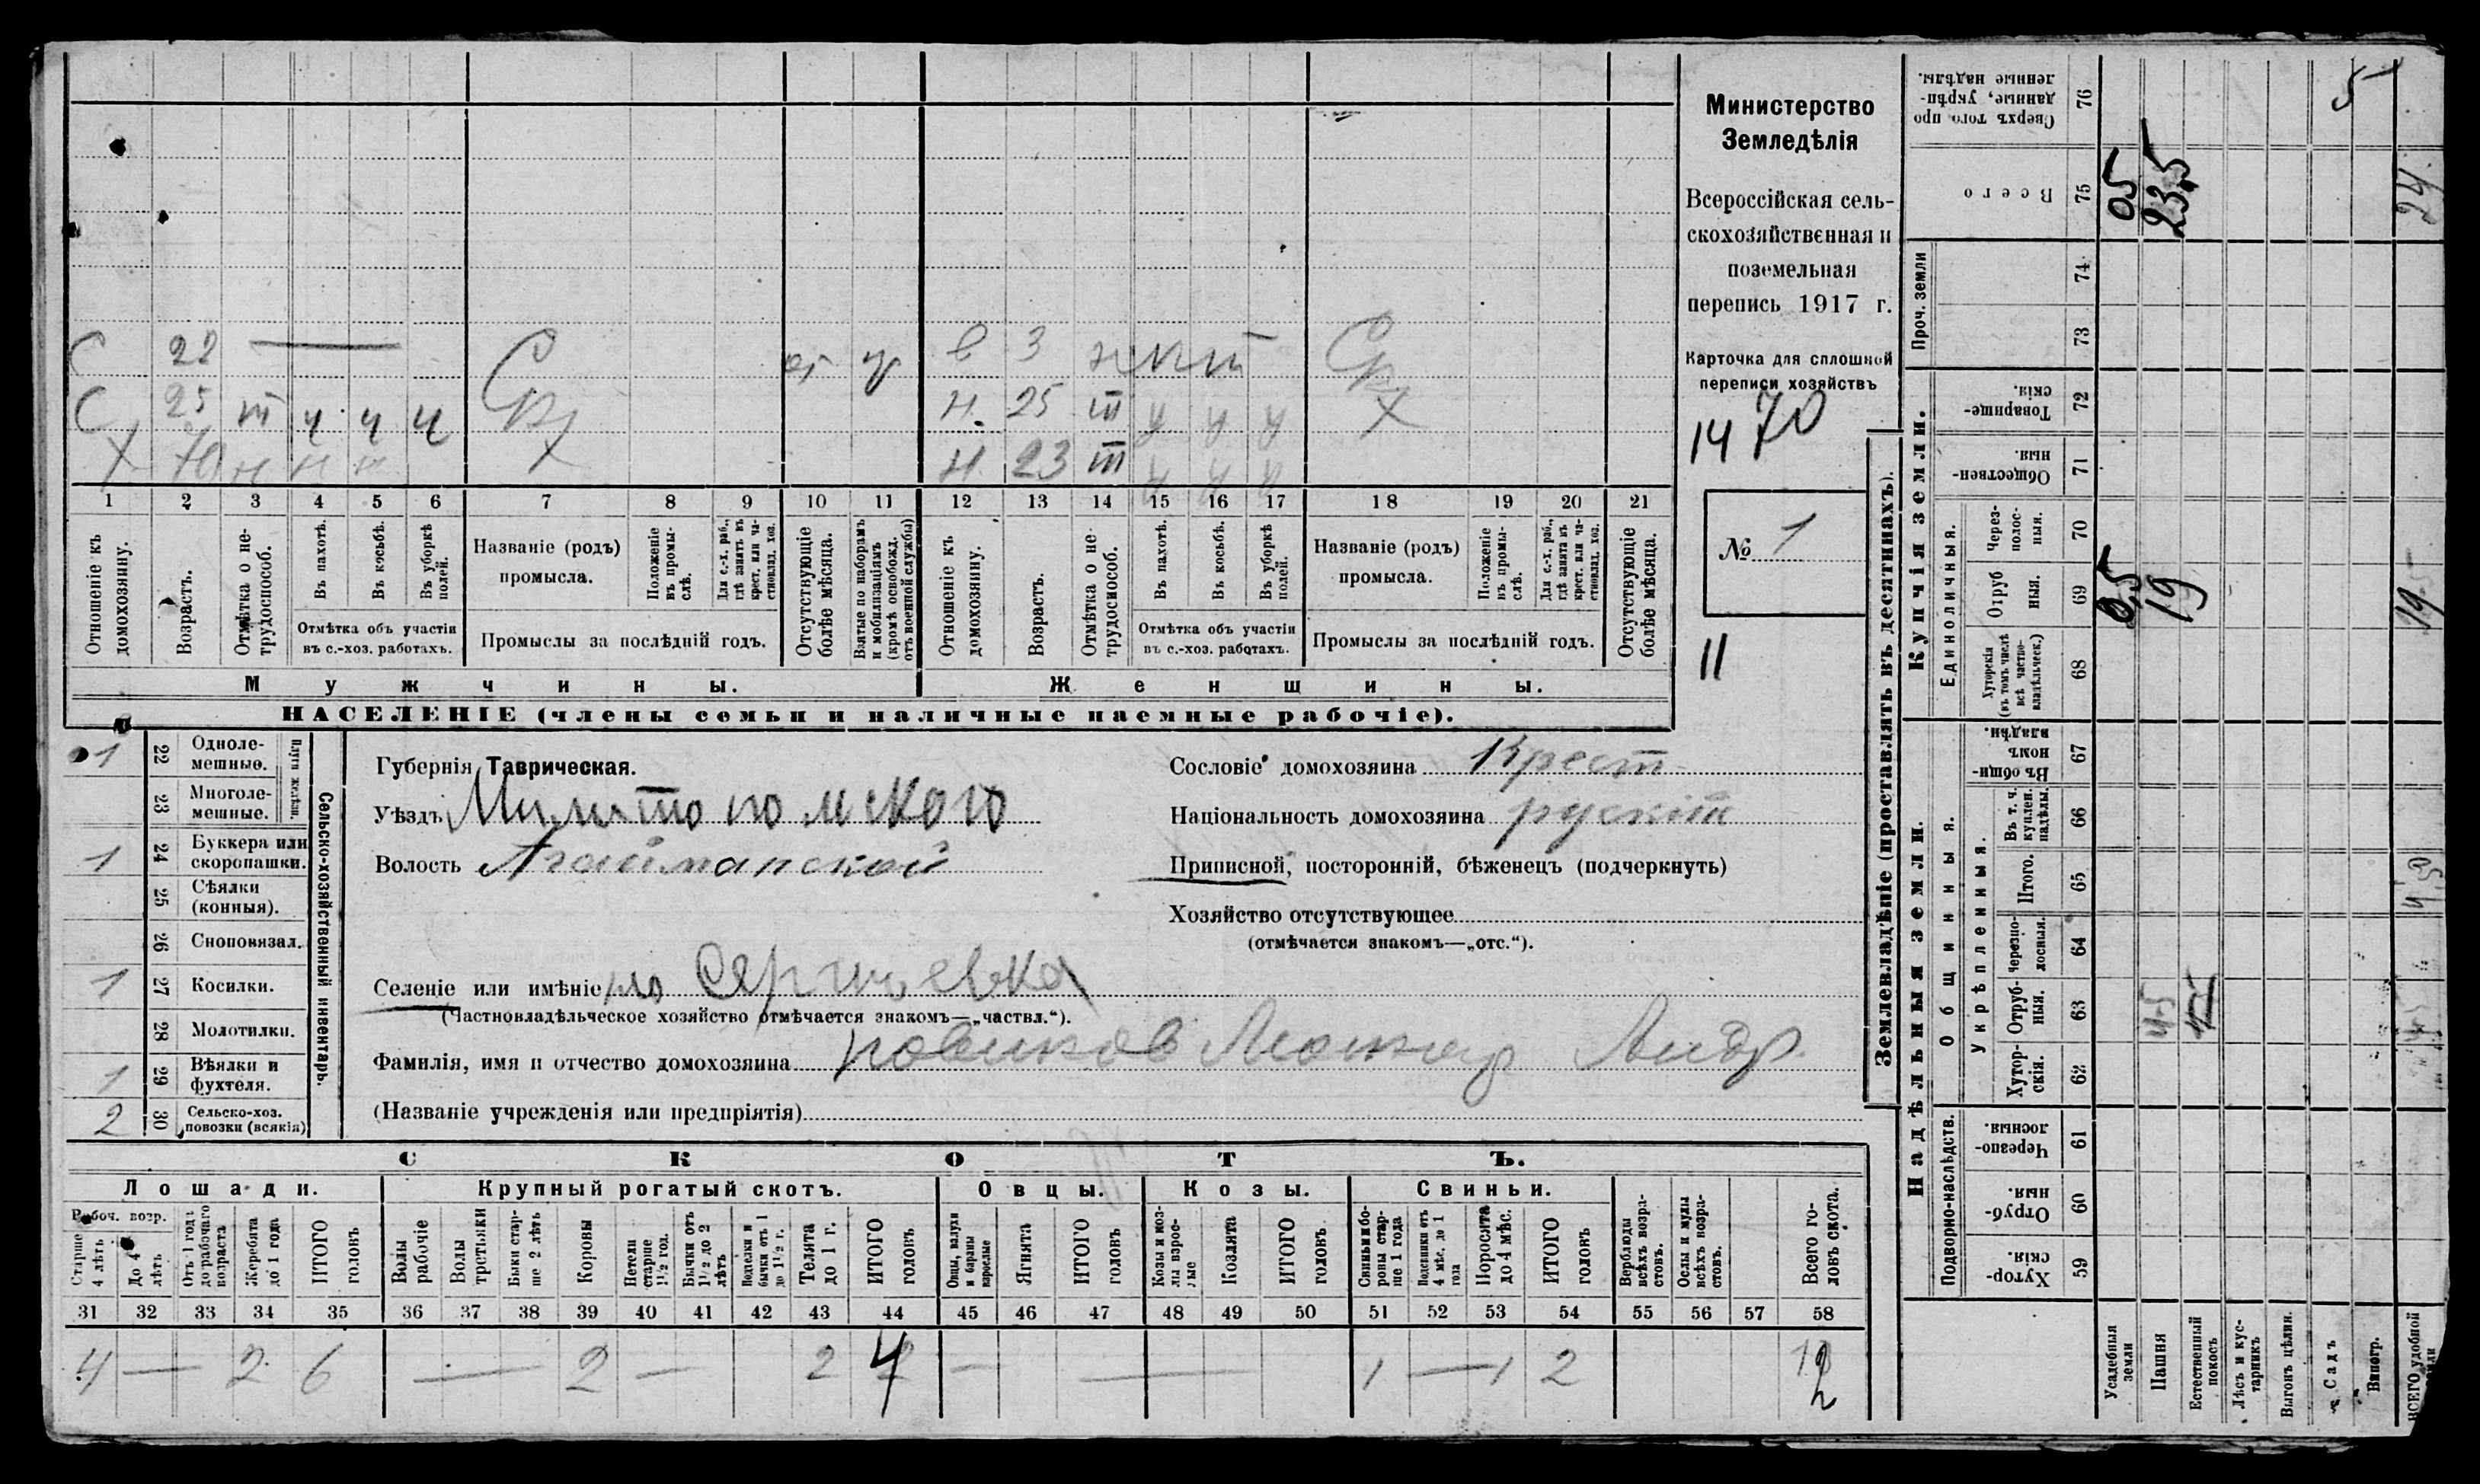 Министерство
Земледѣлія
Всероссійская сель-
скохозяйственная и
поземельная
перепись 1917 г.
Карточка для сплошной
переписи хозяйствъ
14 70
№ 1
11
С 22 — Ср 3
С 25 т ч ч ч Ср Н. 25 т у у у Х
Х 70 н н н Х Н 23 т у у у
1 2 3 4 5 6 7 8 9 10 11 12 13 14 15 16 17 18 19 20 21
Отношеніе къ домохозяину.
Возрастъ.
Отмѣтка о не-трудоспособ.
Въ пахотѣ.
Въ косьбѣ.
Въ уборкѣ полей.
Отмѣтка объ участіи въ с.-хоз. работахъ.
Названіе (родъ) промысла.
Положеніе въ промы-слѣ.
Для с.-х. раб., гдѣ занятъ въ крест. или ча-стновлад. хоз.
Промыслы за послѣдній годъ.
Отсутствующіе болѣе мѣсяца.
Взятые по наборамъ и мобилизаціямъ (кромѣ освобожд. отъ военной службы)
Отношеніе къ домохозяину.
Возрастъ.
Отмѣтка о не-трудоспособ.
Въ пахотѣ.
Въ косьбѣ.
Въ уборкѣ полей.
Отмѣтка объ участіи въ с.-хоз. работахъ.
Названіе (родъ) промысла.
Положеніе въ промы-слѣ.
Для с.-х. раб., гдѣ занята въ крест. или ча-стновлад. хоз.
Промыслы за послѣдній годъ.
Отсутствующіе болѣе мѣсяца.
Мужчины. Женщины.
НАСЕЛЕНІЕ (члены семьи и наличные наемные рабочіе).
Сельско-хозяйственный инвентарь.
Плуги желѣзн.
1 22 Одноле-мешные.
23 Многоле-мешные.
1 24 Буккера или скоропашки.
25 Сѣялки (конныя).
26 Сноповязал.
1 27 Косилки.
28 Молотилки.
1 29 Вѣялки и фухтеля.
2 30 Сельско-хоз. повозки (всякія)
Губернія Таврическая.
Уѣздъ Милитопольского
Волость Агайманской
Селеніе или имѣніе Сергиевка
(Частновладѣльческое хозяйство отмѣчается знакомъ—„частвл.“).
Фамилія, имя и отчество домохозяина Новиков Андр.
(Названіе учрежденія или предпріятія)
Сословіе домохозяина Крест
Національность домохозяина
Приписной, посторонній, бѣженецъ (подчеркнуть)
Хозяйство отсутствующее
(отмѣчается знакомъ—„отс.“).
СКОТЪ.
Лошади. Крупный рогатый скотъ. Овцы. Козы. Свиньи.
Рабоч. возр.
Старше 4 лѣтъ
До 4 лѣтъ
Отъ 1 года до рабочаго возраста
Жеребята до 1 года
ИТОГО головъ
Волы рабочіе
Волы третьяки
Быки стар-ше 2 лѣтъ
Коровы
Петели старше 1½ год.
Бычки отъ 1½ до 2 лѣтъ
Подтелки и бычки отъ 1 до 1½ г.
Телята до 1 г.
ИТОГО головъ
Овцы, валухи и бараны взрослые
Ягнята
ИТОГО головъ
Козы и коз-лы взрос-лые
Козлята
ИТОГО головъ
Свиньи и бо-ровы стар-ше 1 года
Подсвинки отъ 4 мѣс. до 1 года
Поросята до 4 мѣс.
ИТОГО головъ
Верблюды всѣхъ возра-стовъ.
Ослы и мулы всѣхъ возра-стовъ.
Всего го-ловъ скота.
31 32 33 34 35 36 37 38 39 40 41 42 43 44 45 46 47 48 49 50 51 52 53 54 55 56 57 58
4 — 2 6 — 2 — 2 4 — — 1 — 1 2 12
Землевладѣніе (проставлять въ десятинахъ).
Надѣльныя земли. Купчія земли. Проч. земли
Подворно-наслѣдств. Общинныя. Укрѣпленныя. Единоличныя.
Хутор-скія. 59
Отруб-ныя. 60
Черезпо-лосныя. 61
Хутор-скія. 62
Отруб-ныя. 63
Черезпо-лосныя. 64
Итого. 65
Въ т. ч. куплен. надѣлы. 66
Въ общи-номъ владѣн. 67
Хуторскія (въ томъ числѣ всѣ частно-владѣльческ.) 68
Отруб ныя. 69
Через-полос-ныя. 70
Обществен-ныя. 71
Товарище-скія. 72
73
74
Всего 75
Сверхъ того про данные, укрѣп-ленные надѣлы. 76
Усадебныя земли 0,5 05
Пашня 4.5 19 23,5
Естественный покосъ
Лѣсъ и кус-тарникъ
Выгонъ цѣлин.
Садъ 5
Виногр.
ВСЕГО удобной земли 24